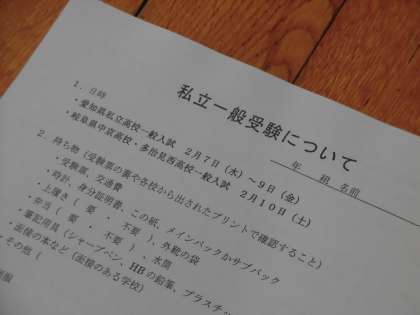 私立一般受験について
年 組 名前
1. 日時
・愛知県私立高校一般入試 2月7日(木)~9日(金)
・岐阜県中京高校・多治見西高校一般入試 2月10日(土)
2. 持ち物(受験票の裏や各校から出されたプリントで確認すること)
・受験票、交通費
・時計、身分証明書、この紙、メインバックかサブバック
・上履き( 要 ・ 不要 )、外靴の袋
・弁当( 要 ・ 不要 )、水筒
・筆記用具(シャープペン、HBの鉛筆、プラスチッ
・面接の本など(面接のある学校)
・その他(